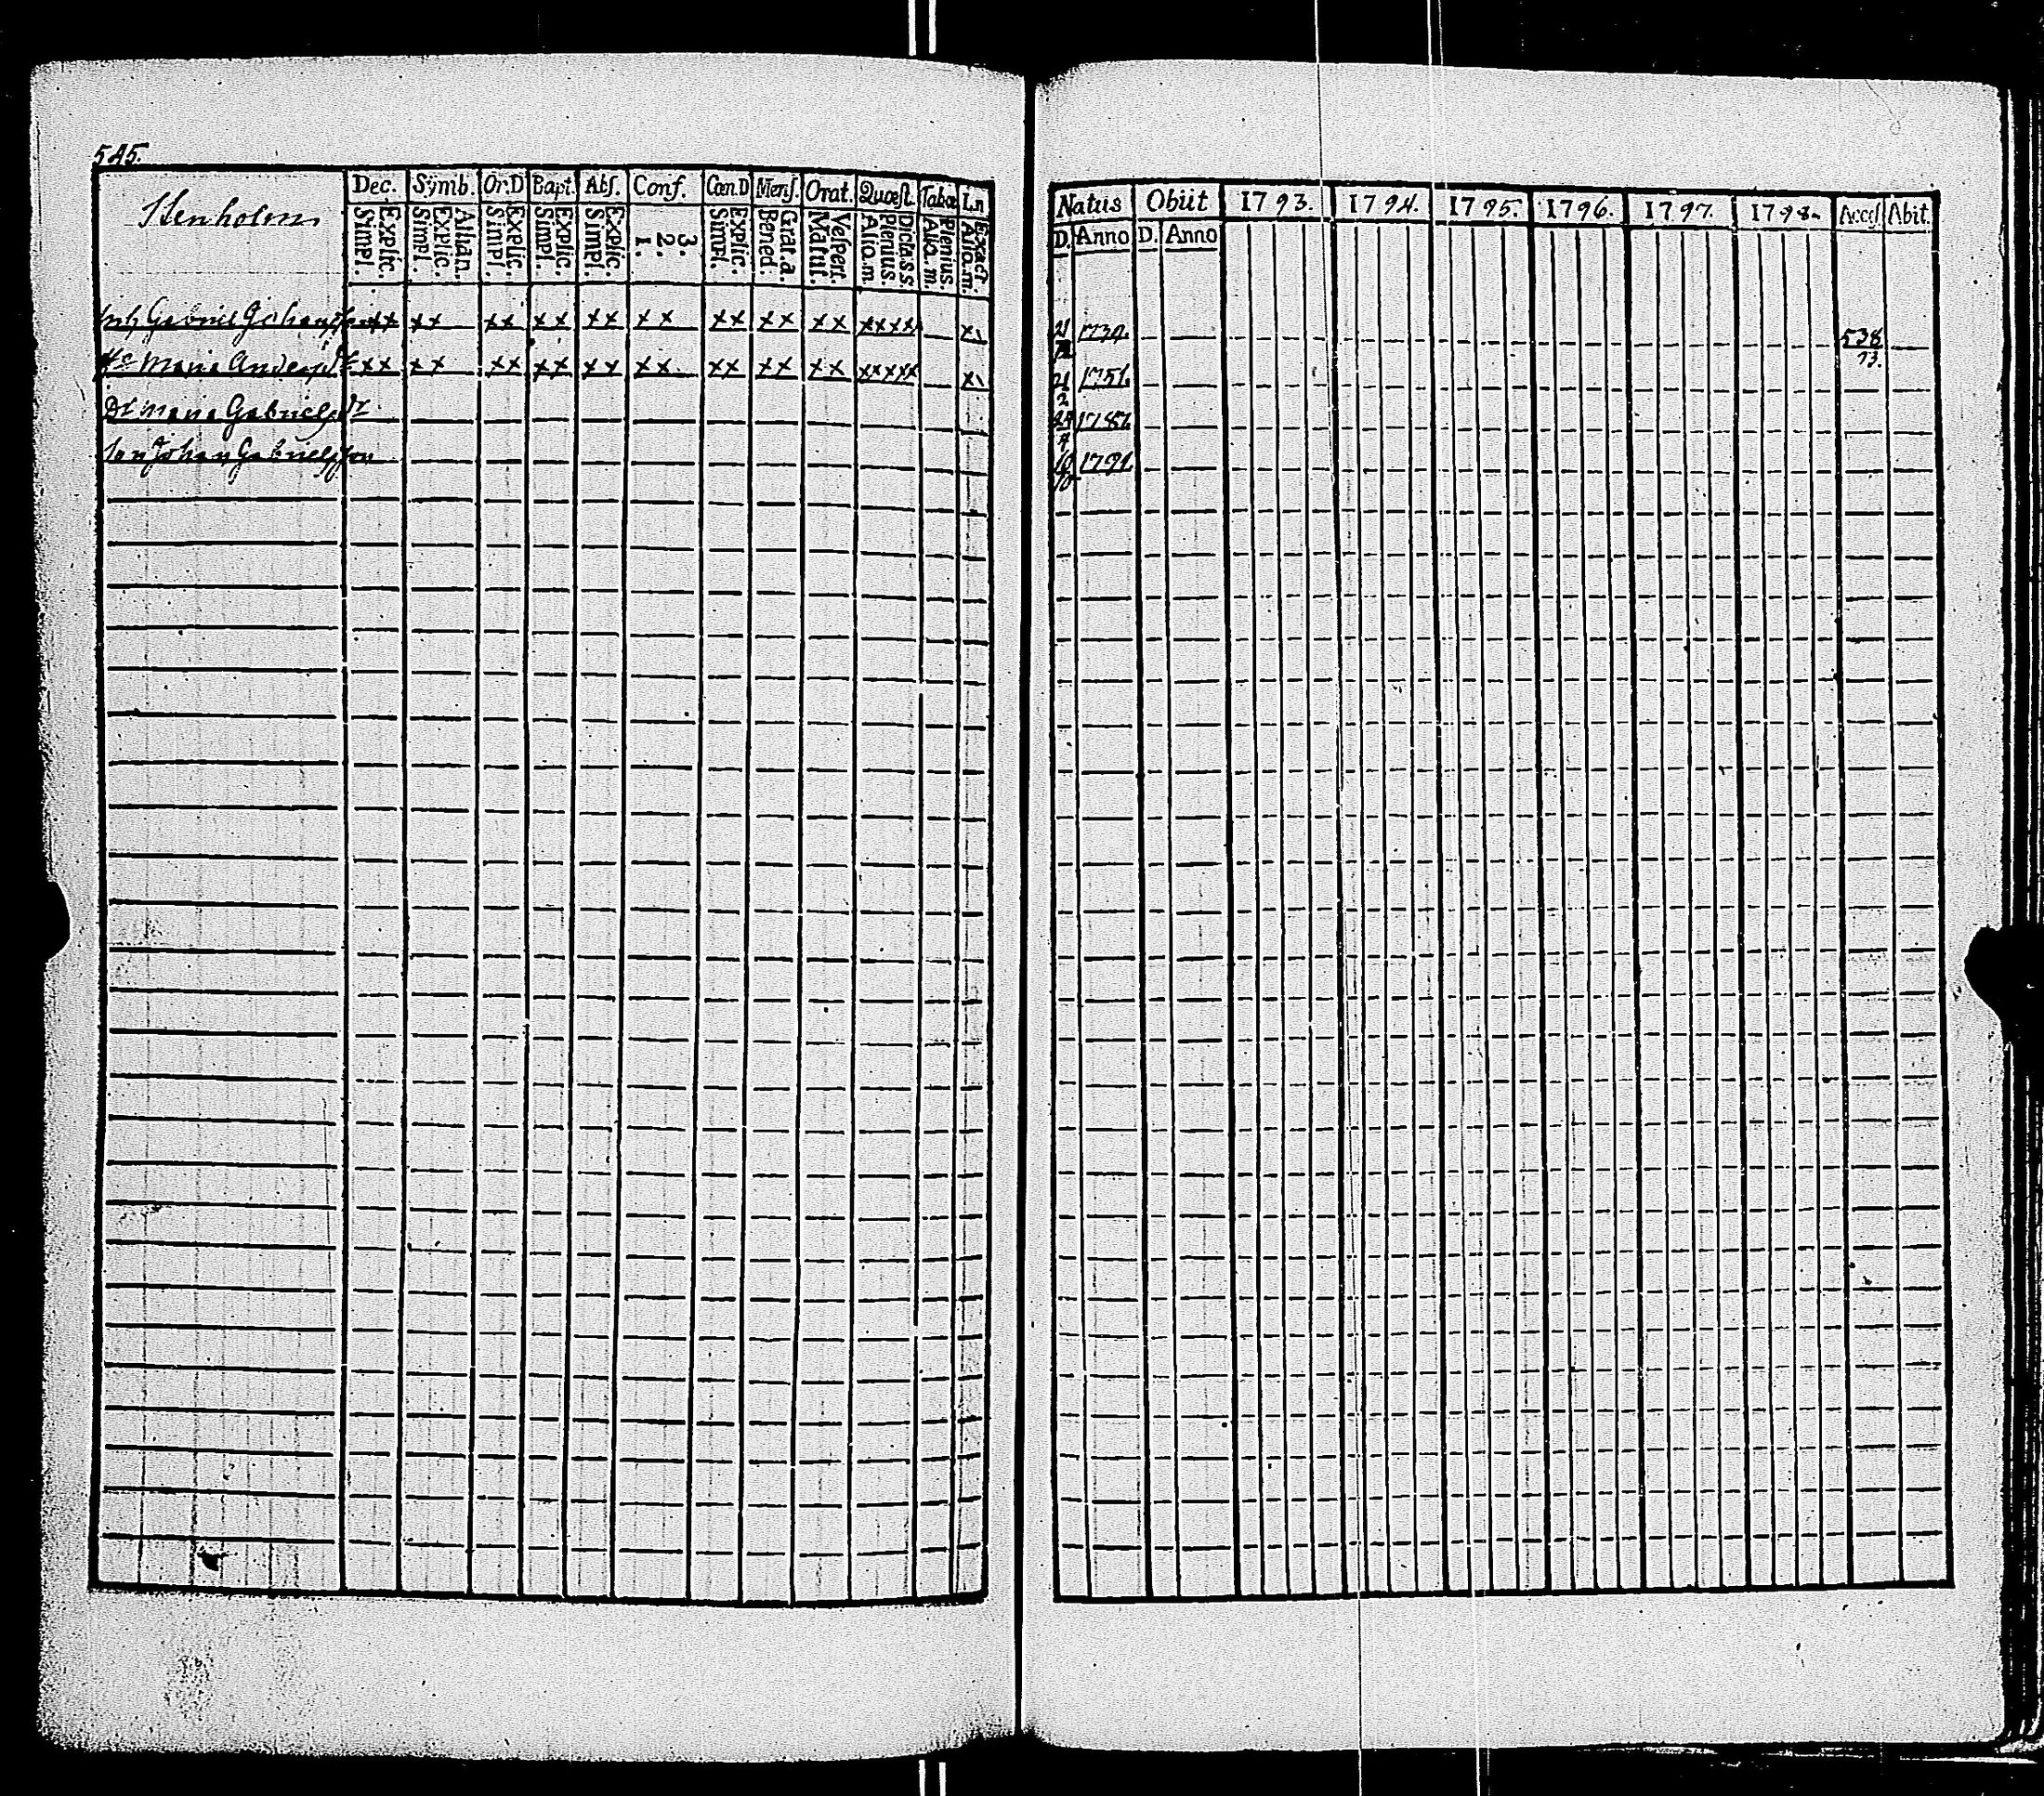 545.
Stenholm
Dec. Symb. Or.D Bapt. Abs. Conf. Cœn.D Mens. Orat. Quæst. Tabæ Ln
Explic. Simpl. Athan. Explic. Simpl. Explic. Simpl. Explic. Simpl. Explic. Simpl. 3. 2. 1. Explic. Simpl. Grat. a. Bened. Vespert. Matut. Dicta.s.s. Plenius. Alio.m. Plenius. Alio.m. Exact. Alio.m.
Gabriel Johansson xx xx xx xx xx xx xx xx xx xxxx x\
Maria Andersdr xx xx xx xx xx xx xx xx xx xxxxx x\
Dr Maria Gabrielsdr
Son Johan Gabrielsson
Natus Obiit 1793. 1794. 1795. 1796. 1797. 1798. Access Abit.
D. Anno D. Anno
21 538
73.
21/2 1751.
24/4 1787.
10/10 1791.